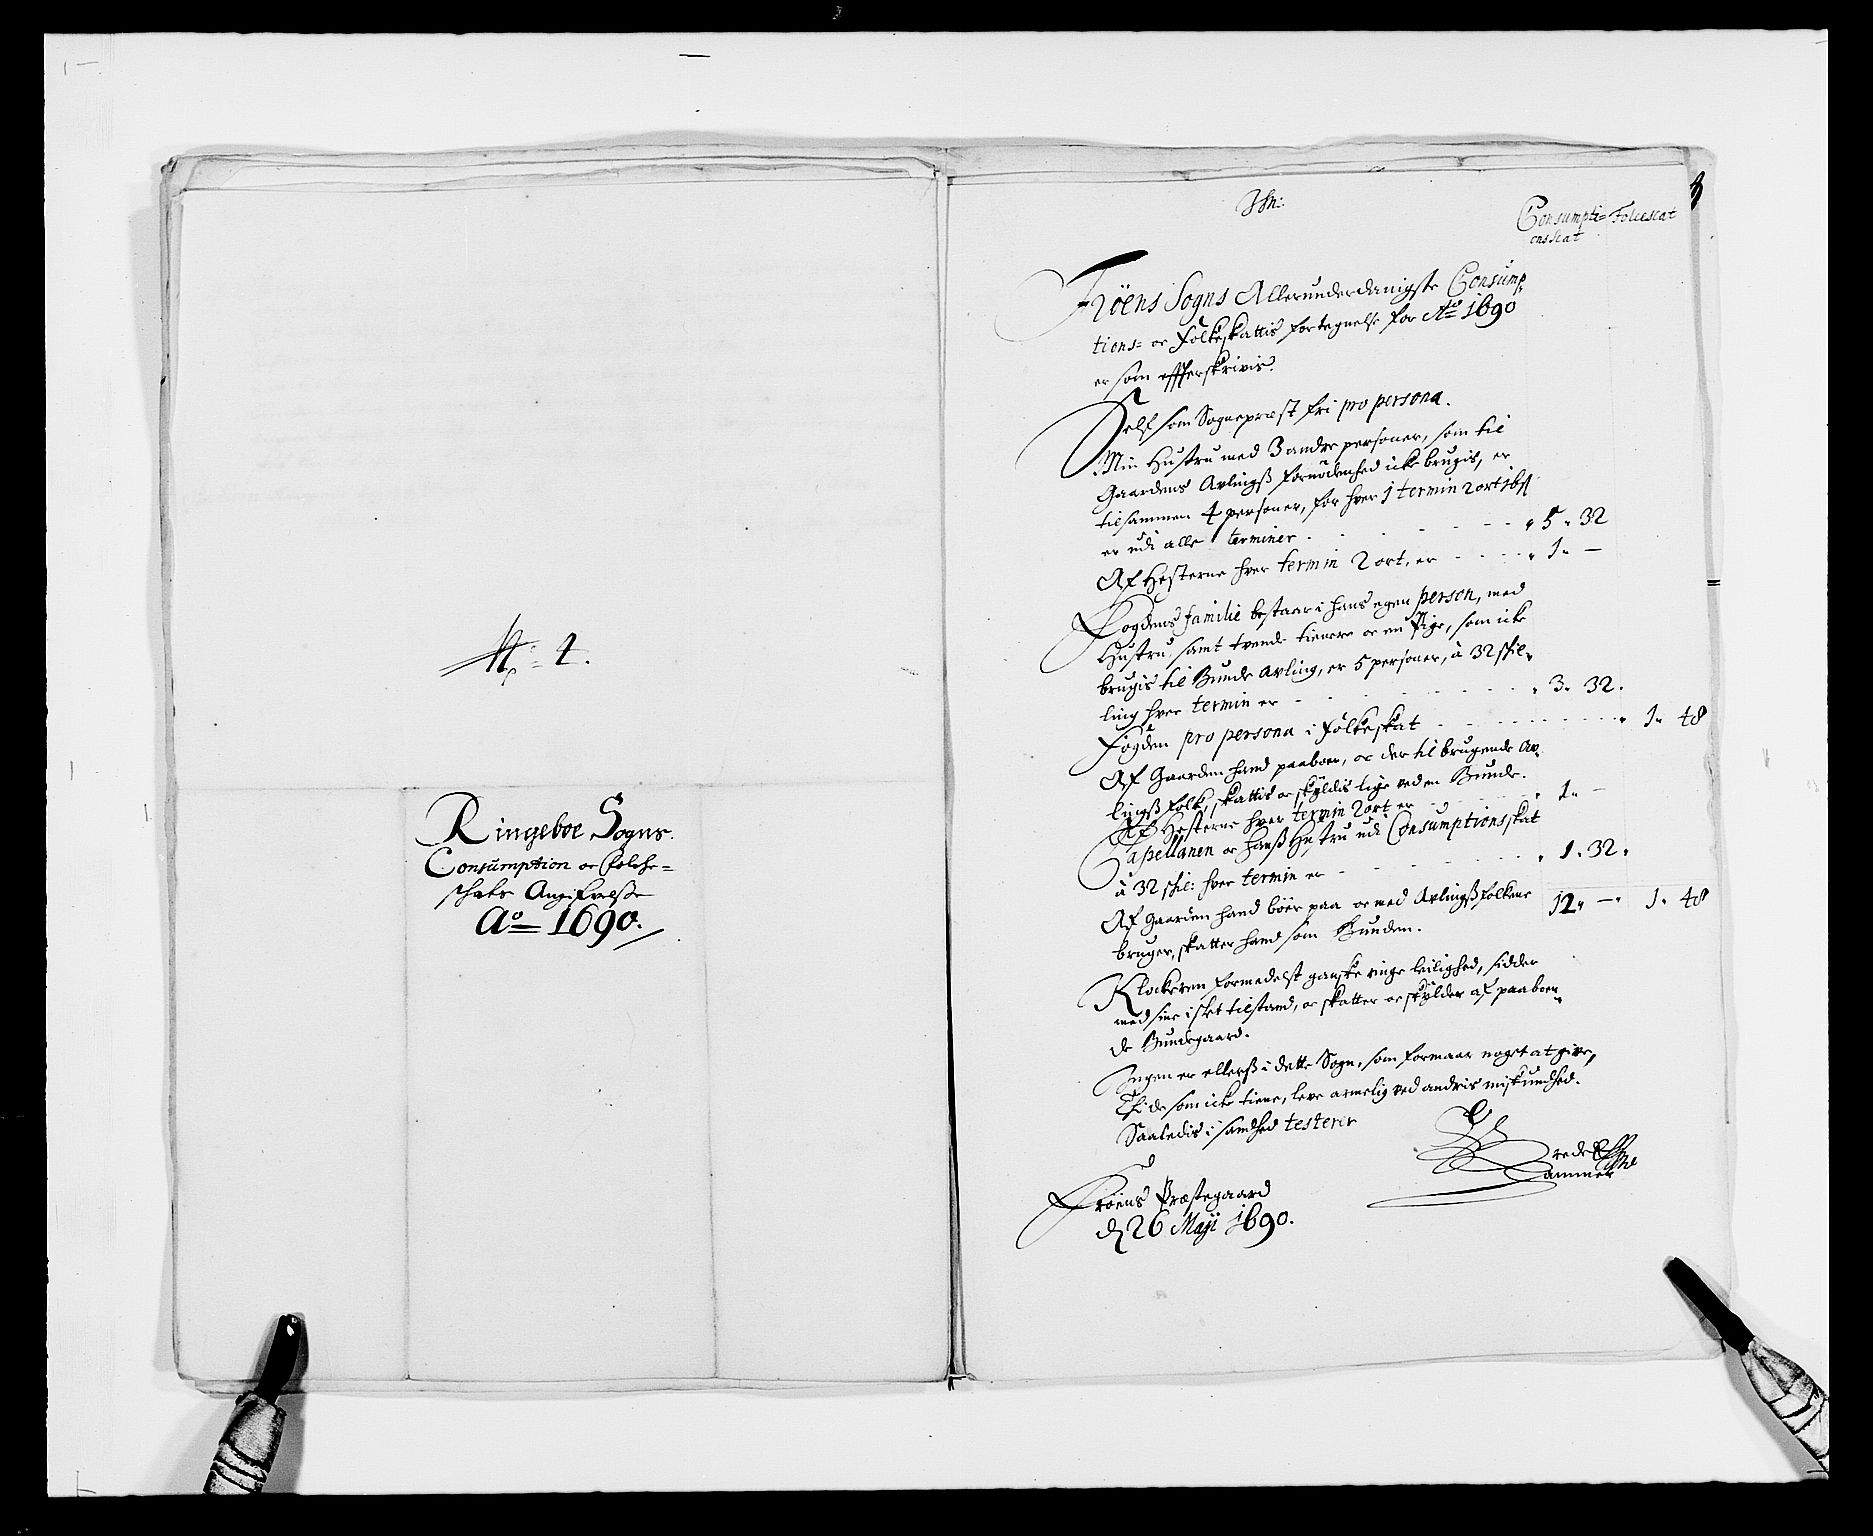 No: 4.
Ringeboe Sogns
Consumption oc Folche=
schats Angifvelsse
Ao 1690.
Consumpti= Folcescat
onsscat
Fröens Sogns Allerunderdanigste Consump
tions= oc Folkeskattis fortegnelse for Ao 1690
er som effterskrivis.
Self som Sogneprest fri pro persona.
Min Hustru med 3 andre personer, som til
Gaardens Avlingß fornödenhed icke brugis, er
tilsammen 4 personer, for hver 1 termin 2 ort 16 ß
er udi alle terminer - - - - 5 " 32
Af Hesterne hver termin 2 ort, er - - - " 1 " -
Fogdens familie bestaar i hans egen person, med
Hustru samt tvende tienere oc en Pige, som icke
brugis til Bunde avling, er 5 personer, à 32 skil=
ling hver termin er - - - - " 3 " 32.
Fogden pro persona i Folkeskat - - - - " 1 " 48
Af Gaarden hand paaboer, oc der til brugende Av=
lingß folk, skattis oc skyldis lige ved en Bunde.
Af Hesterne hver termin 2 ort er - - - " 1 " -
Capellanen oc hanß Hustru udi Consumptionsskat
à 32 skil: hver termin er - - - - " 1 " 32 "
Af gaarden hand böer paa oc med Avlingßfolkene 12 " - " 1 " 48
bruger, skatter hand som Bunden.
Klockeren formedelst ganske ringe leilighed, sidder
med sine i slet tilstand, oc skatter oc skylder af paaboen=
de Bundegaard.
Ingen er ellerß i dette Sogn, som formaar noget at give,
Thi de som icke tiene, leve armelig ved andris miskundhed.
Saaledis i sandhed testerer
Fröens Præstegaard
d 26 Maji 1690.